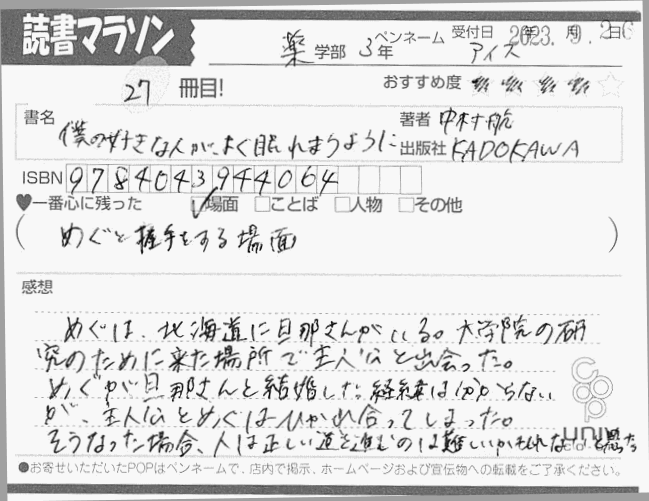 読書マラソン
薬学部 3年 ペンネーム アイス 受付日 2023年 9月 26日
27 冊目!
おすすめ度
書名 僕の好きな人が、よく眠れますように
著者 中村航
出版社 KADOKAWA
ISBN 9784043944064
♥一番心に残った ☑場面 □ことば □人物 □その他
(めぐと握手をする場面)
感想
めぐは、北海道に旦那さんがいる。大学院の研
究のために来た場所で主人公と出会った。
めぐが旦那さんと結婚した経緯は分からない
が、主人公とめぐはひかれ合ってしまった。
そうなった場合、人は正しい道を進むのは難しいかもしれないと思った
coop
univ
●お寄せいただいたPOPはペンネームで、店内で掲示、ホームページおよび宣伝物への転載をご了承ください。